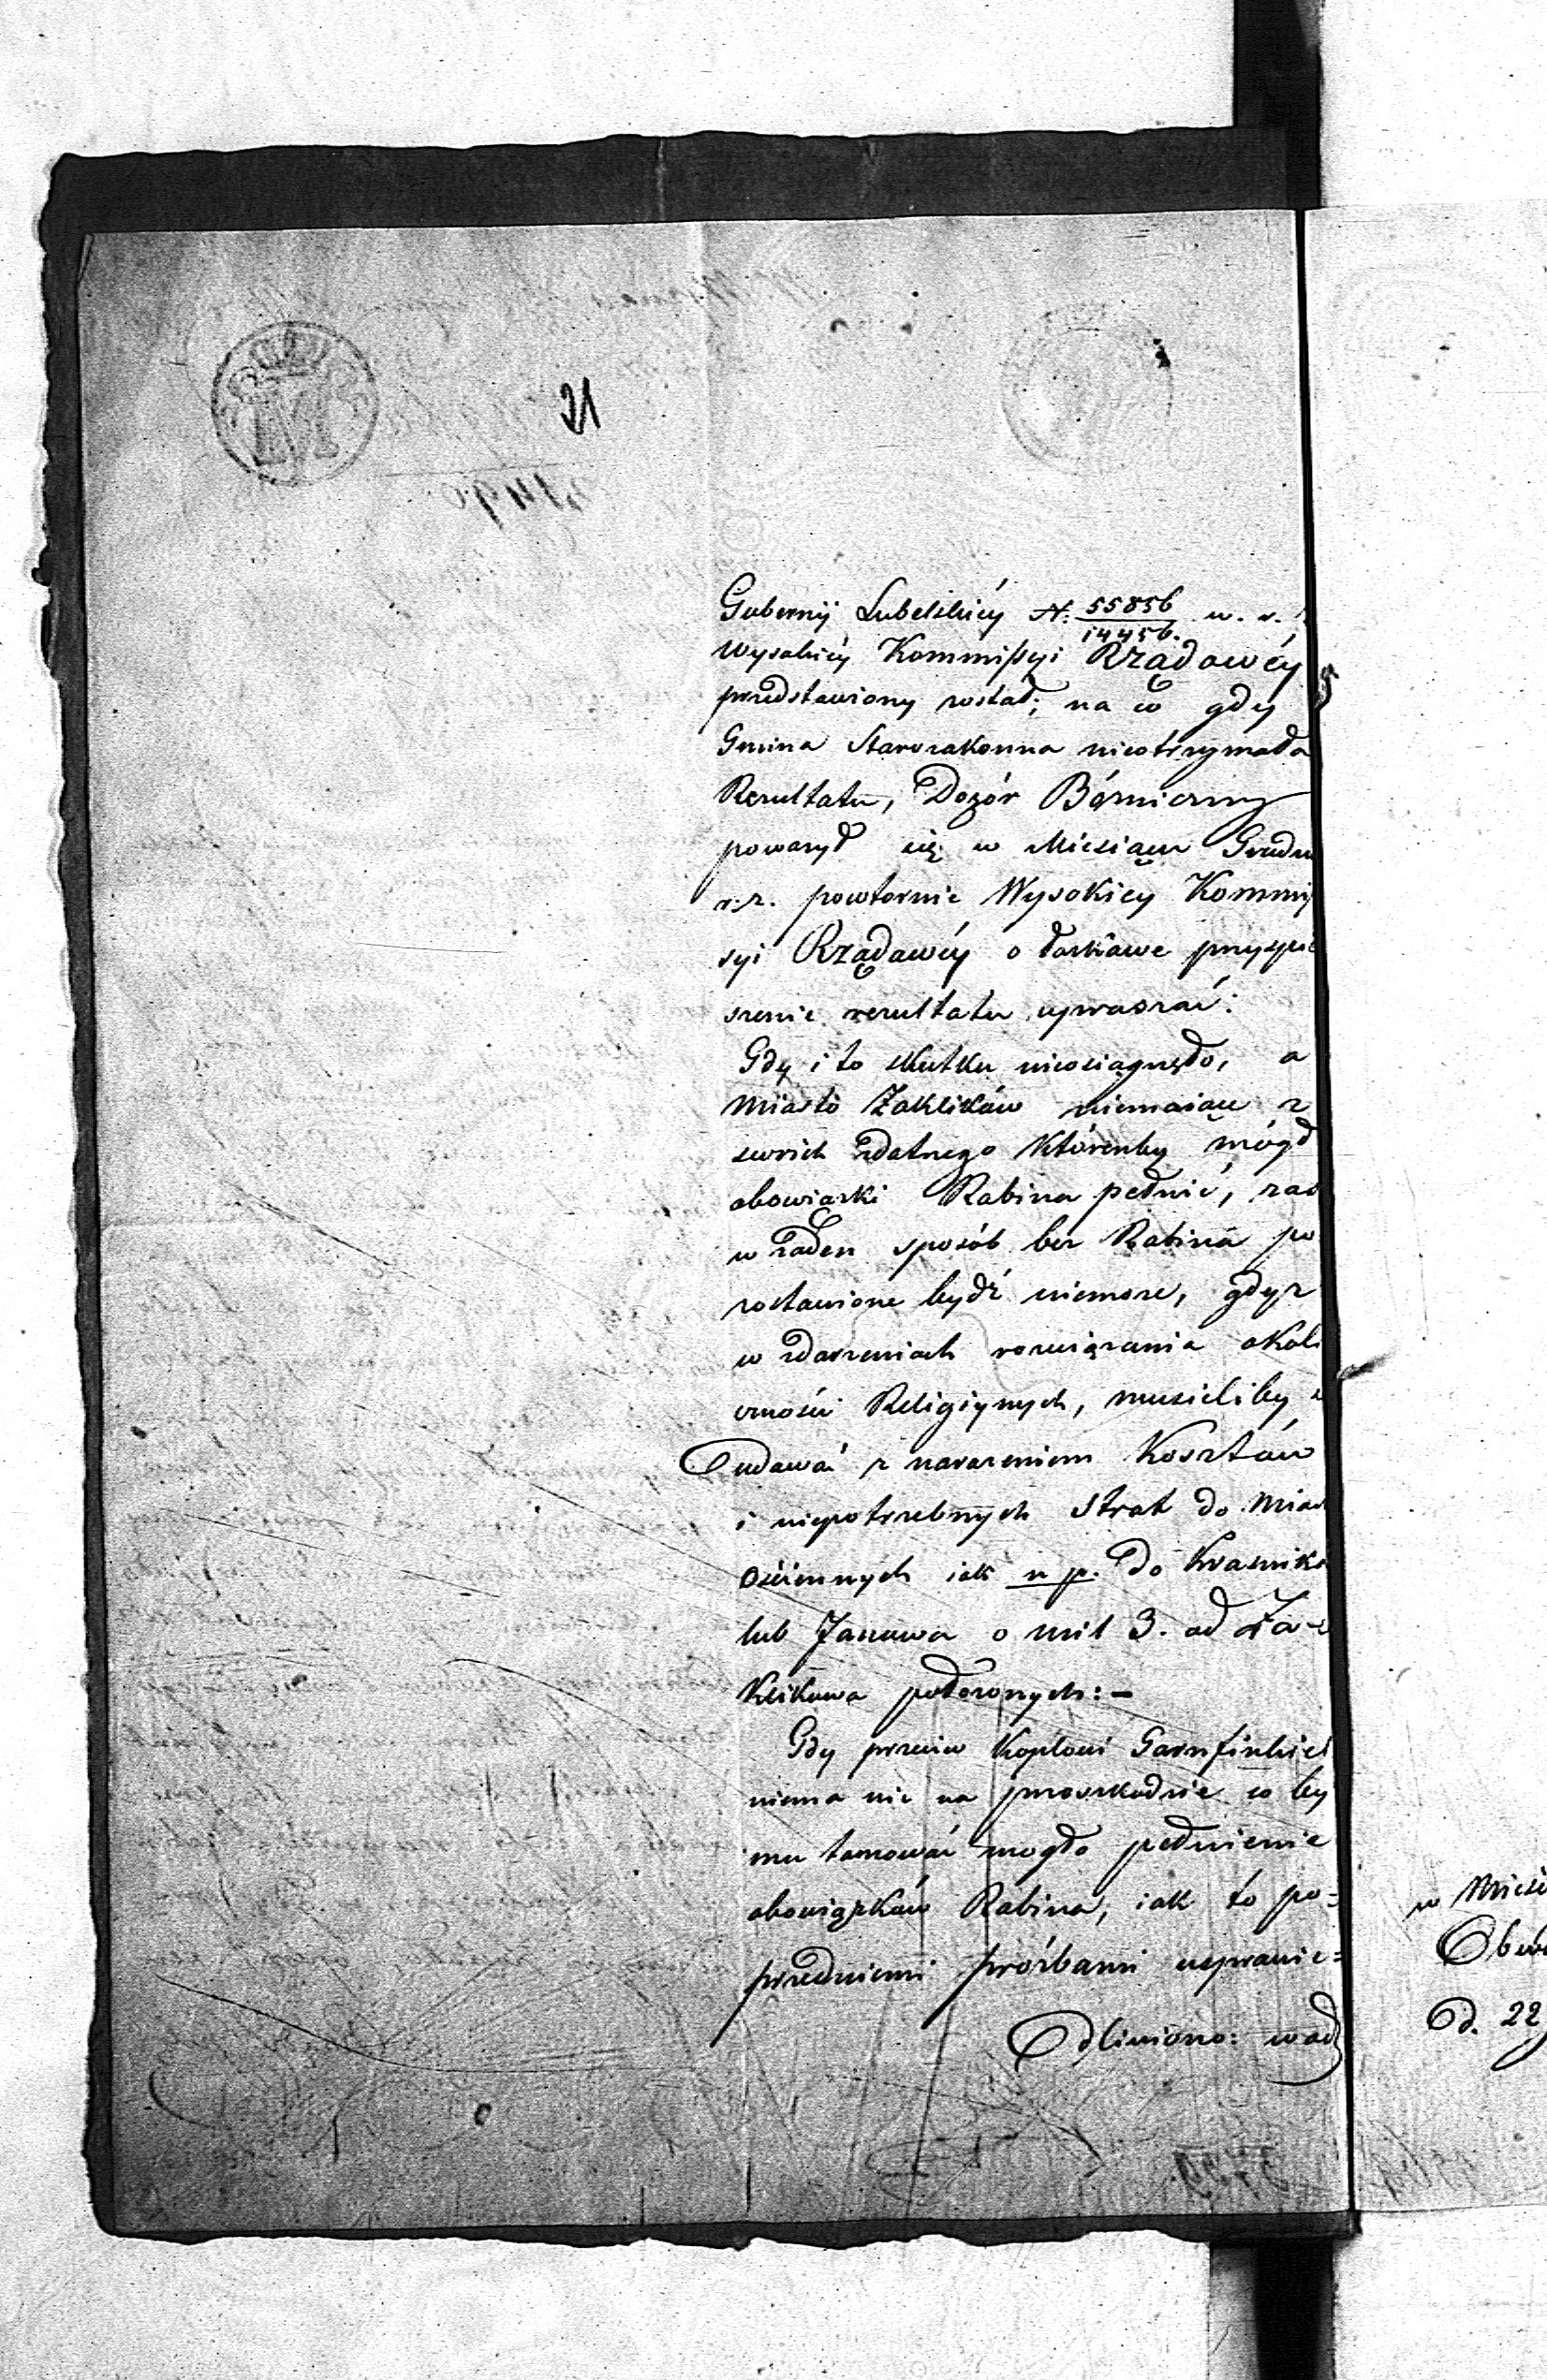 21
Gubernij Lubelskiéy N: 55856/14456. w. r.
Wysokiéy Kommissyi Rządowéy
przedstawiony został; na co gdy
Gmina Starozakonna nieotrzymała
Rezultatu, Dozór Bóżniczny
poważył się w Miesiącu Grudn
r: z. powtornie Wysokiey Kommis
syi Rządowéy o łaskawe przyspie
szenie rezultatu upraszać:
Gdy i to skutku nieosiągnęło, a
Miasto Zaklików niemaiąc z
swoich zdatnego którenby mógł
obowiązki Rabina pełnić, zaś
w żaden sposób bez Rabina po
zostawione bydź niemoże, gdyż
w zdarzeniach rozwiązania okoli
czności Religiynych, musieliby
udawać z narażeniem Kosztów
i niepotrzebnych strat do Mias
ościennych iak n p. do Kraśnika
lub Janowa o mil 3. od Za-
klikowa położonych: –
Gdy przeciw Koplowi Garnfinkiel
niema nic na przeszkodzie co by
mu tamować mogło pełnienie
obowiązków Rabina, iak to po=
przedniemi proźbami usprawie=
dliwiono: wad
w Mieśc
Obwo
d. 22